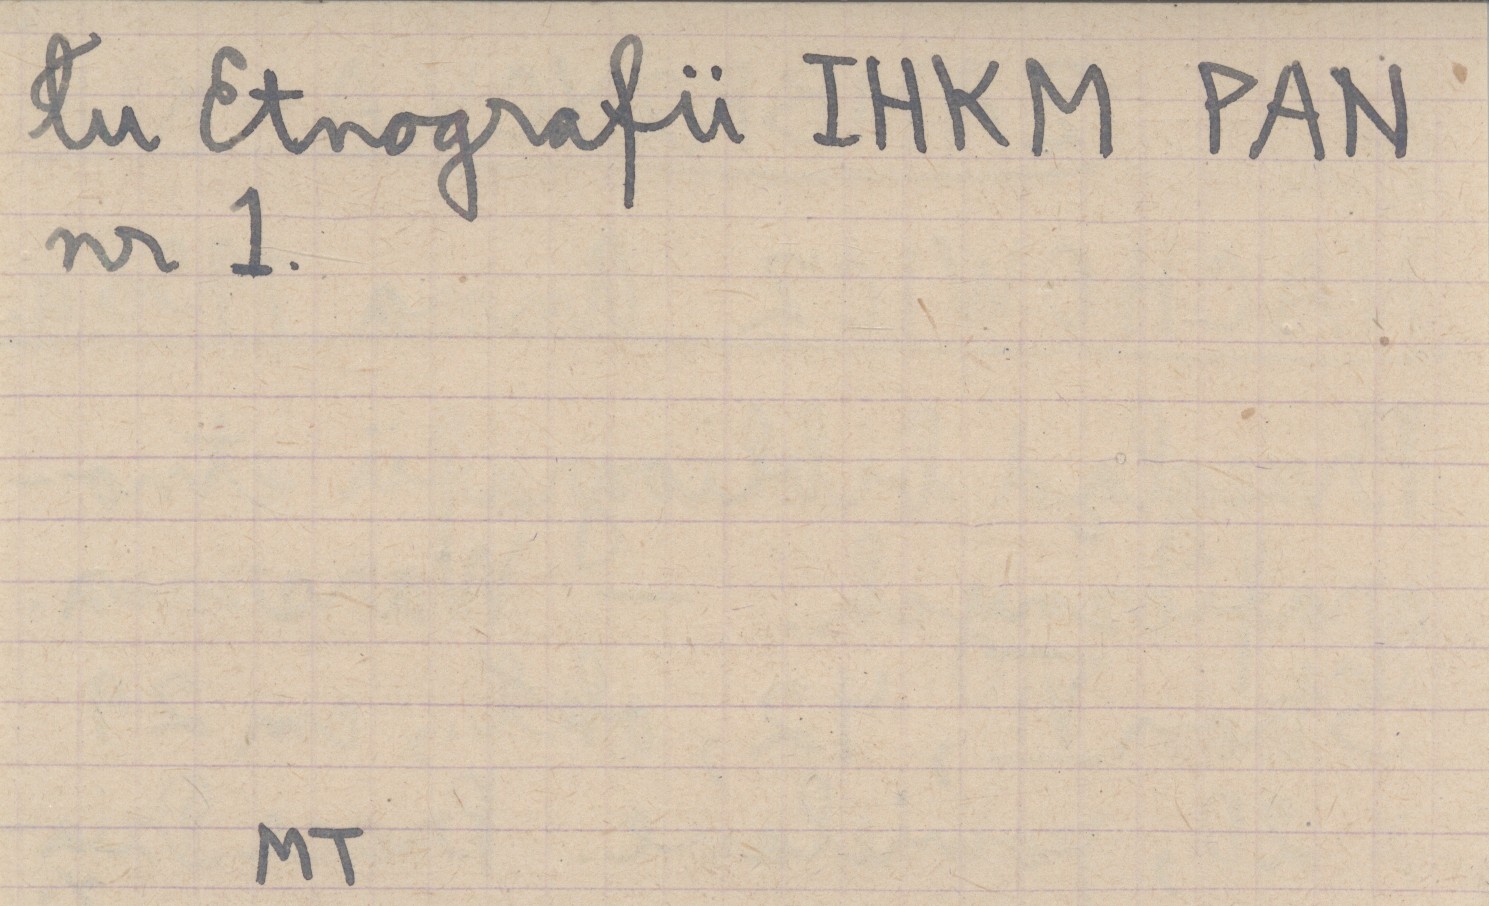 łu Etnografii IHKM PAN
nr 1.
MT